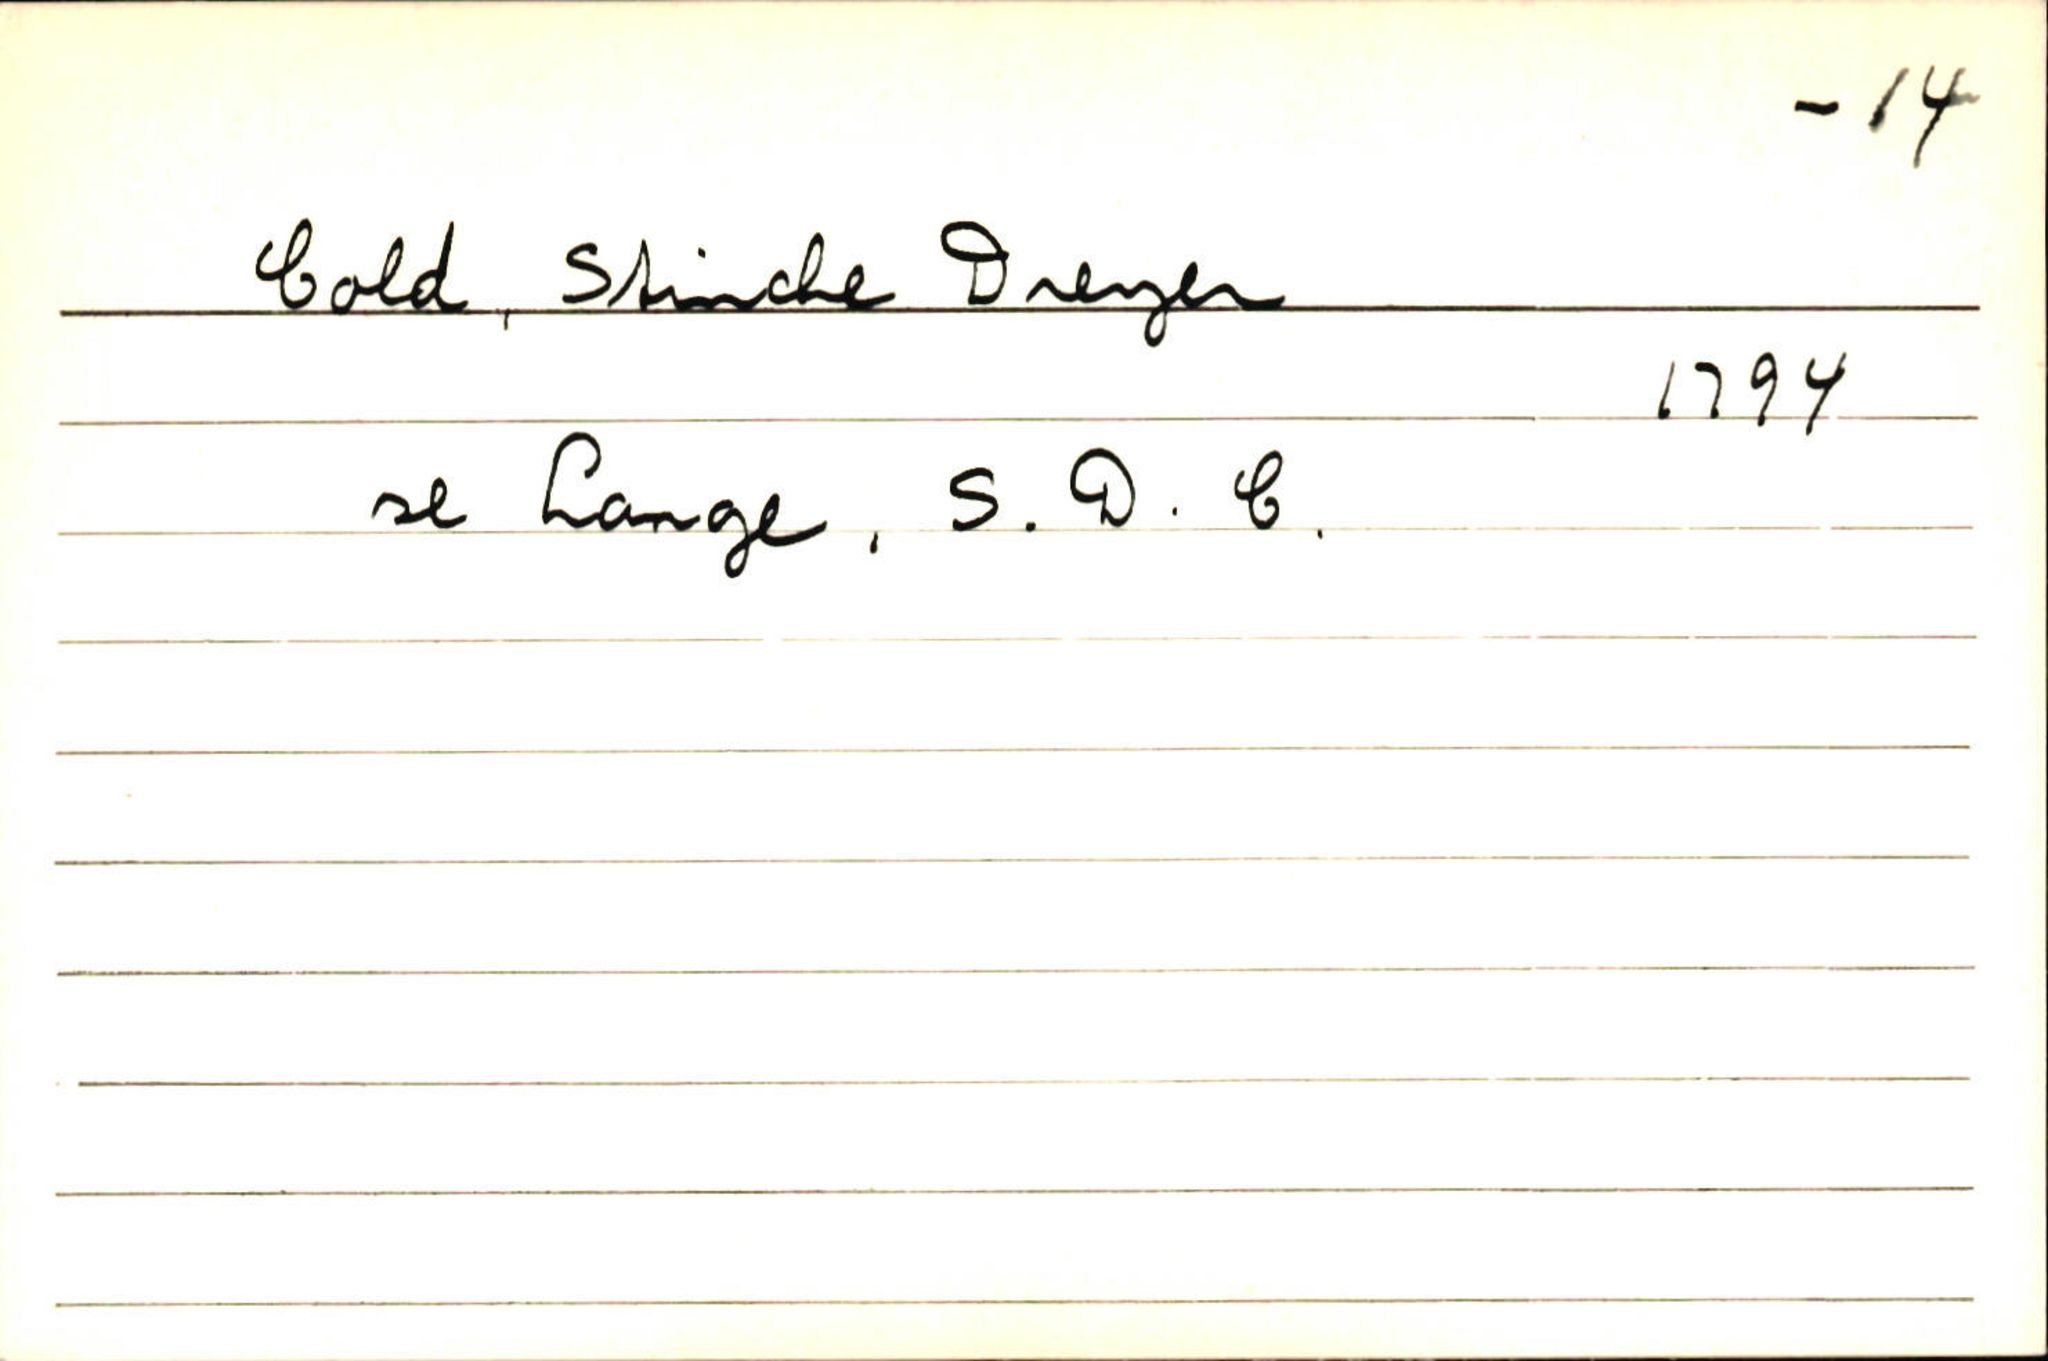 -14
Cold, Stinche Dreyer
1794
se Lange, S. D. C.